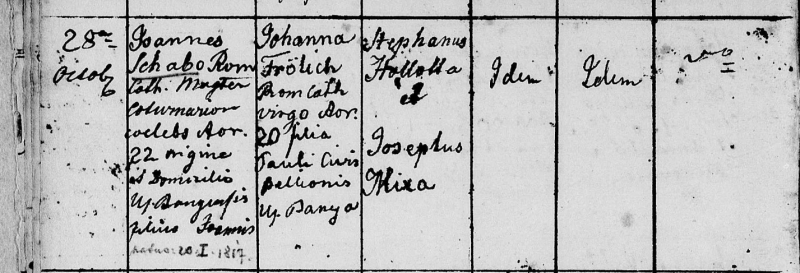 28a
Octob
Joannes
Schabo Rom
Cath. Magter
Coturnarior
coelebs Aor.
22 origine
et Domicilio
Uj Bangensis
filius Joannis
natus 20. I. 1817.
Johanna
Frölich
Rom Cath
virgo Aor.
20 filia
Pauli Civis
Pellionis
Uj Banya
Stephanus
Hollotta
et
Josephus
Mixa
Idem
Idem